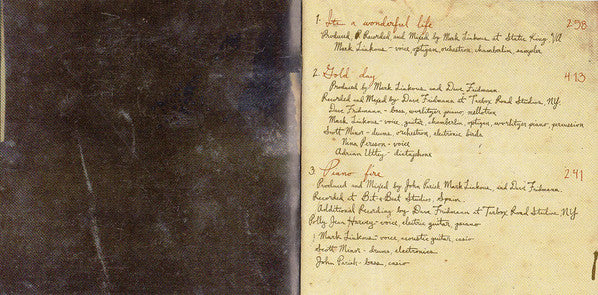 1. Its a wonderful life 2:58
Produced, Recorded, and Mixed by Mark Linkous at Static King, VA
Mark Linkous - voice, optigan, orchestron, chamberlin, sampler
2. Gold day 4:13
Produced by Mark Linkous and Dave Fridmann
Recorded and Mixed by Dave Fridmann at Tarbox Road Studios, NY.
Dave Fridmann - bass, wurlitzer piano, mellotron
Mark Linkous - voice, guitar, chamberlin, optigan, wurlitzer piano, percussion
Scott Minor - drums, orchestron, electronic birds
Nina Persson - voice
Adrian Utley - dictaphone
3. Piano fire 2:41
Produced and Mixed by John Parish, Mark Linkous, and Dave Fridmann
Recorded at Bit & Beat Studios, Spain.
Additional Recording by Dave Fridmann at Tarbox Road Studios NY
Polly Jean Harvey - voice, electric guitar, piano
Mark Linkous - voice, acoustic guitar, casio
Scott Minor - drums, electronics
John Parish - bass, casio